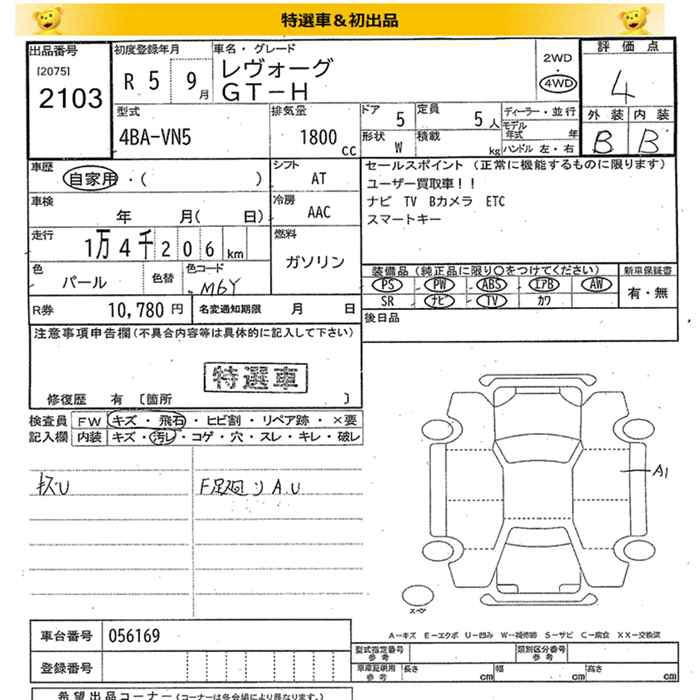 特選車＆初出品
出品番号 初度登録年月 車名・グレード 2WD 評価点
[2075] R 5 9月 レヴォーグ 4WD 4
2103 GT-H
型式 排気量 ドア 定員 ディーラー・並行 外装 内装
4BA-VN5 1800 CC 5 5人 モデル年式 年 B B
形状 W 積載 kg ハンドル 左・右
車歴 シフト セールスポイント (正常に機能するものに限ります)
自家用・( ) AT ユーザー買取車！！
車検 冷房 ナビ TV Bカメラ ETC
年 月( 日) AAC スマートキー
走行 燃料
1万4千206km ガソリン
色 色替 色コード 装備品 (純正品に限り○をつけてください) 新車保証書
パール M6Y PS PW ABS エアB AW 有・無
SR ナビ TV カワ
R券 10,780円 名変通知期限 月 日 後日品
注意事項申告欄(不具合内容等は具体的に記入して下さい)
特選車
修復歴 有 [箇所 ]
検査員 FW キズ・飛石・ヒビ割・リペア跡・×要
記入欄 内装 キズ・汚レ・コゲ・穴・スレ・キレ・破レ
A1
キズU F足廻りA.U
スペア
A－キズ E－エクボ U－凹み W－補修跡 S－サビ C－腐食 XX－交換済
車台番号 056169 型式指定番号 参考 類別区分番号 参考
登録番号 車庫証明用 参考 長さ cm 幅 cm 高さ cm
希望出品コーナー (コーナーは各会場により異なります。)